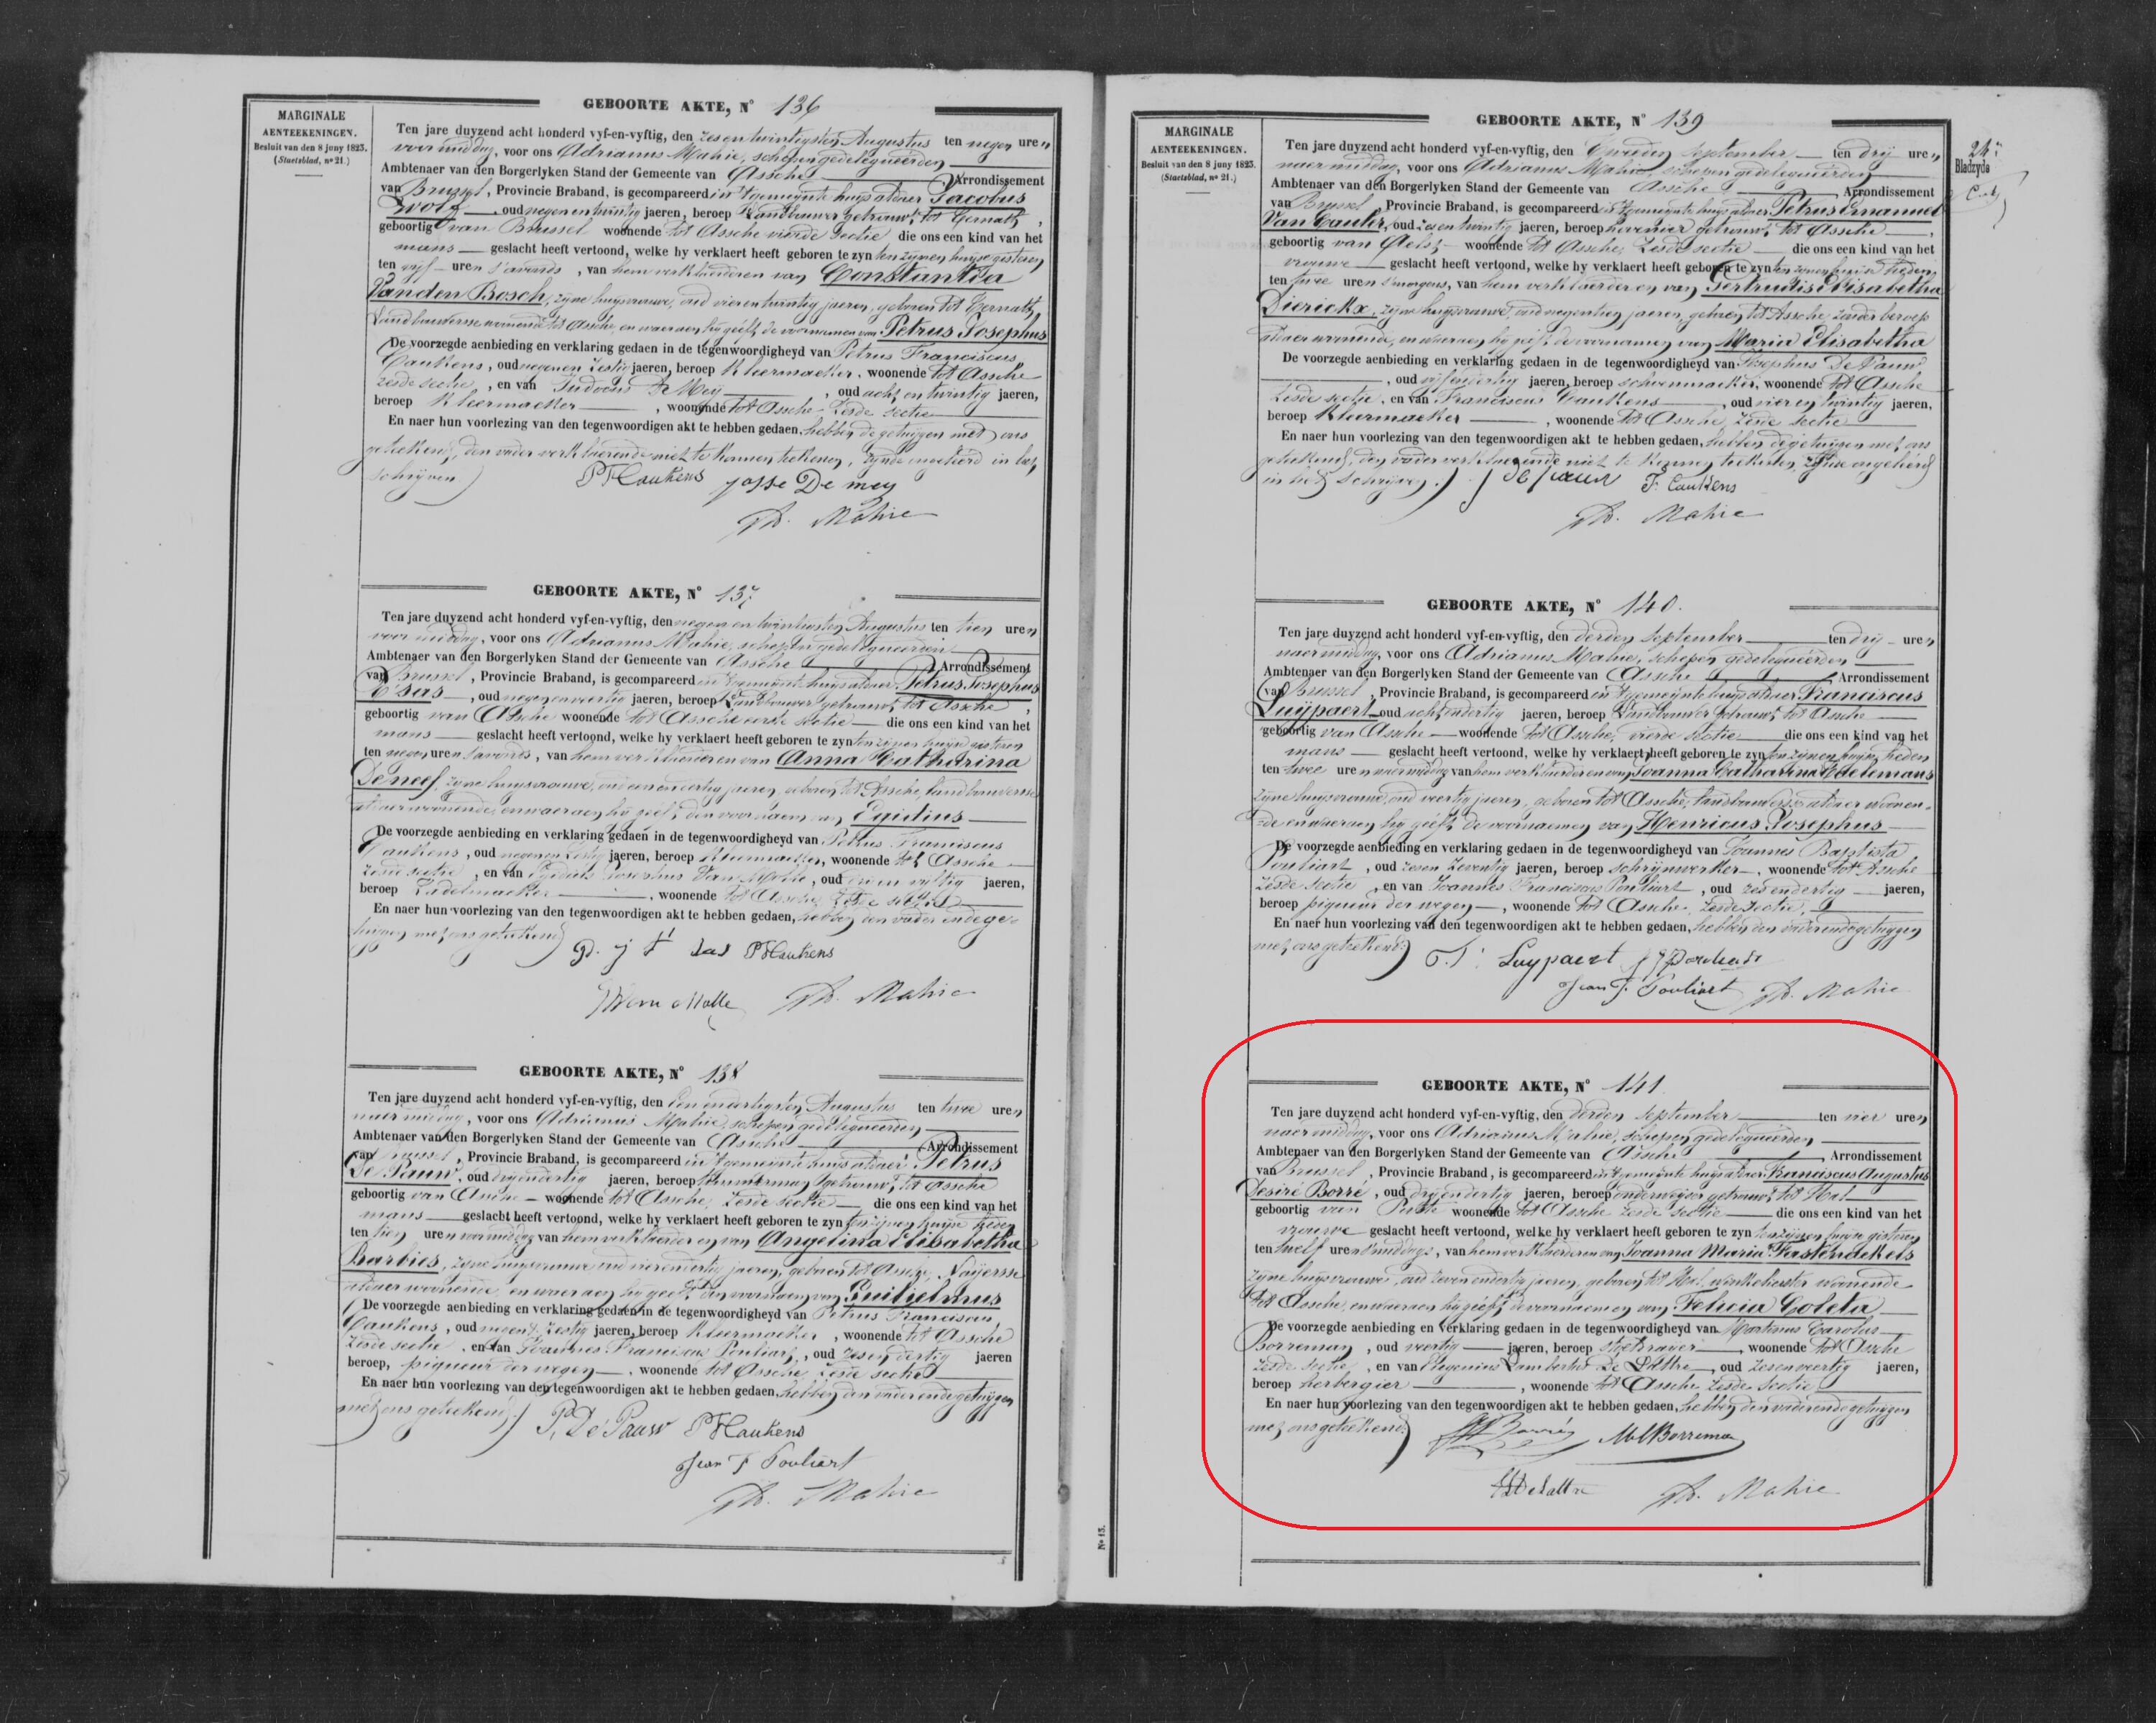 MARGINALE
AENTEEKENINGEN.
Besluit van den 8 juny 1823.
(Staetsblad, nº 21.)
GEBOORTE AKTE, Nº 136
Ten jare duyzend acht honderd vyf-en-vyftig, den zesentwintigsten Augustus ten negen uren
voormiddag, voor ons Adrianus Mahie, schepen gedelegueérden
Ambtenaer van den Borgerlyken Stand der Gemeente van Assche Arrondissement
van Brussel, Provincie Braband, is gecompareerd in 't gemeynte huys aldaer Jacobus
oud negenentwintig jaeren, beroep Landbouwer getrouwt tot Ternath,
geboortig van Brussel woonende tot Assche vierde sectie die ons een kind van het
mans geslacht heeft vertoond, welke hy verklaert heeft geboren te zyn ten zynen huyse gisteren
ten vyf uren s'avonds, van hem verklaerder en van Constantia
Vanden Bosch, zyne huysvrouwe, oud vierentwintig jaeren, geboren tot Ternath,
Landbouwersse woonende tot Assche, en waeraen hy geéft de voornamen van Petrus Josephus
De voorzegde aenbieding en verklaring gedaen in de tegenwoordigheyd van Petrus Franciscus
Caukens, oud negenenzestig jaeren, beroep Kleermaeker, woonende tot Assche
zesde sectie, en van Judocus De Mey, oud achtentwintig jaeren,
beroep Kleermaeker, woonende tot Assche zesde sectie
En naer hun voorlezing van den tegenwoordigen akt te hebben gedaen, hebben de getuygen met ons
geteekend, den vader verklaerende niet te konnen teekenen, zynde in het
schryven
PF Caukens Josse De mey
Ad. Mahie
GEBOORTE AKTE, Nº 137
Ten jare duyzend acht honderd vyf-en-vyftig, den negenentwintigsten Augustus ten tien uren
voormiddag, voor ons Adrianus Mahie, schepen gedelegueérden
Ambtenaer van den Borgerlyken Stand der Gemeente van Assche Arrondissement
van Brussel, Provincie Braband, is gecompareerd in 't gemeynte huys aldaer Petrus Josephus
T'Sas, oud negenenveertig jaeren, beroep Landbouwer getrouwt tot Assche,
geboortig van Assche woonende tot Assche eerste sectie die ons een kind van het
mans geslacht heeft vertoond, welke hy verklaert heeft geboren te zyn ten zynen huyse gisteren
ten negen uren s'avonds, van hem verklaerder en van Anna Catharina
De neef, zyne huysvrouwe, oud jaeren, geboren tot Assche, landbouwersse
aldaer woonende, en waeraen hy geéft den voornaem van Egidius
De voorzegde aenbieding en verklaring gedaen in de tegenwoordigheyd van Petrus Franciscus
Caukens, oud negenenzestig jaeren, beroep Kleermaeker, woonende tot Assche
zesde sectie, en van Egidius Josephus Van Molle, oud drienvyftig jaeren,
beroep Zadelmaeker, woonende tot Assche, zesde sectie
En naer hun voorlezing van den tegenwoordigen akt te hebben gedaen, hebben den vader en de ge-
tuygen met ons geteekend
P. j t' sas PF Caukens
Van Molle Ad. Mahie
GEBOORTE AKTE, Nº 138
Ten jare duyzend acht honderd vyf-en-vyftig, den eenendertigsten Augustus ten twee uren
naermiddag, voor ons Adrianus Mahie, schepen gedelegueérden
Ambtenaer van den Borgerlyken Stand der Gemeente van Assche Arrondissement
van Brussel, Provincie Braband, is gecompareerd in 't gemeynte huys aldaer Petrus
De Pauw, oud dryendertig jaeren, beroep timmerman getrouwt tot Assche
geboortig van Assche woonende tot Assche, zesde sectie die ons een kind van het
mans geslacht heeft vertoond, welke hy verklaert heeft geboren te zyn ten zynen huyse heden
ten tien uren voormiddag van hem verklaerder en van Angelina Elisabetha
Barbies, zyne huysvrouwe oud vierendertig jaeren, geboren tot Assche, Naeyersse
aldaer woonende, en waeraen hy geeft den voornaem van Guilielmus
De voorzegde aenbieding en verklaring gedaen in de tegenwoordigheyd van Petrus Franciscus
Caukens, oud negenenzestig jaeren, beroep Kleermaeker, woonende tot Assche
zesde sectie, en van Joannes Franciscus Pouliart, oud zesendertig jaeren
beroep, piqueur der wegen, woonende tot Assche zesde sectie
En naer hun voorlezing van den tegenwoordigen akt te hebben gedaen, hebben den vader en de getuygen
met ons geteekend.
P, De Pauw PF Caukens
Jean F Pouliart
Ad. Mahie
MARGINALE
AENTEEKENINGEN.
Besluit van den 8 juny 1823.
(Staetsblad, nº 21.)
Nº 13.
24
Bladzyde
GEBOORTE AKTE, Nº 139
Ten jare duyzend acht honderd vyf-en-vyftig, den tweeden september ten dry uren
naermiddag, voor ons Adrianus Mahie, schepen gedelegueérden
Ambtenaer van den Borgerlyken Stand der Gemeente van Assche, Arrondissement
van Brussel, Provincie Braband, is gecompareerd in 't gemeynte huys aldaer Petrus Emanuel
Van Cauter, oud zesentwintig jaeren, beroep hovenier getrouwt tot Assche,
geboortig van Aelst woonende tot Assche, zesde sectie die ons een kind van het
vrouwe geslacht heeft vertoond, welke hy verklaert heeft geboren te zyn ten zynen huyse heden
ten twee uren s'morgens, van hem verklaerder en van Gertrudis Elisabetha
Dierickx, zyne huysvrouwe, oud negentien jaeren, geboren tot Assche zonder beroep
aldaer woonende, en waeraen hy geéft de voornamen van Maria Elisabetha
De voorzegde aenbieding en verklaring gedaen in de tegenwoordigheyd van Josephus De Pauw
, oud vyfendertig jaeren, beroep schoenmaeker, woonende tot Assche
zesde sectie, en van Franciscus Caukens, oud vierentwintig jaeren,
beroep Kleermaeker, woonende tot Assche, zesde sectie
En naer hun voorlezing van den tegenwoordigen akt te hebben gedaen, hebben de getuygen met ons
geteekend, den vader verklaerende niet te konnen teekenen, zynde ongeleérd
in het schryven.
J de pauw F. Caukens
Ad. Mahie
GEBOORTE AKTE, Nº 140.
Ten jare duyzend acht honderd vyf-en-vyftig, den derden september ten dry uren
naermiddag, voor ons Adrianus Mahie, schepen gedelegueérden
Ambtenaer van den Borgerlyken Stand der Gemeente van Assche Arrondissement
van Brussel, Provincie Braband, is gecompareerd in 't gemeynte huys aldaer Franciscus
Luÿpaert oud achtendertig jaeren, beroep Landbouwer getrouwt tot Assche
geboortig van Assche woonende tot Assche, vierde sectie die ons een kind van het
mans geslacht heeft vertoond, welke hy verklaert heeft geboren te zyn ten zynen huyse heden
ten twee uren van hem verklaerder en van Joanna Catharina Edelemans
zyne huysvrouwe, oud veertig jaeren, geboren tot Assche, landbouwersse aldaer woonen-
de en waeraen hy geéft de voornamen van Henricus Josephus
De voorzegde aenbieding en verklaring gedaen in de tegenwoordigheyd van Joannes Baptista
Pouliart, oud zevenzeventig jaeren, beroep schrynwerker, woonende tot Assche
zesde sectie, en van Joannes Franciscus Pouliart, oud zesendertig jaeren,
beroep piqueur der wegen, woonende tot Assche, zesde sectie,
En naer hun voorlezing van den tegenwoordigen akt te hebben gedaen, hebben den vader en de getuygen
met ons geteekend.
F. Luypaert
Jean F. Pouliart Ad. Mahie
GEBOORTE AKTE, Nº 141.
Ten jare duyzend acht honderd vyf-en-vyftig, den derden september ten vier uren
naermiddag, voor ons Adrianus Mahie, schepen gedelegueérden
Ambtenaer van den Borgerlyken Stand der Gemeente van Assche, Arrondissement
van Brussel, Provincie Braband, is gecompareerd in 't gemeynte huys aldaer Franciscus Augustus
Desiré Borré, oud dryendertig jaeren, beroep onderwyzer getrouwt tot Hal
geboortig van woonende tot Assche zesde sectie die ons een kind van het
vrouwe geslacht heeft vertoond, welke hy verklaert heeft geboren te zyn ten zynen huyse gisteren
ten twelf uren s'middags, van hem verklaerder en van Joanna Maria Fastenaekels
zyne huysvrouwe, oud zevenendertig jaeren, geboren tot Hal, winkelierster woonende
tot Assche, en waeraen hy geéft de voornaemen van Felicia Coleta
De voorzegde aenbieding en verklaring gedaen in de tegenwoordigheyd van Martinus Carolus
Borreman, oud veertig jaeren, beroep, woonende tot Assche
zesde sectie, en van Eugenius Lambertus De Lattre, oud zesenveertig jaeren,
beroep herbergier, woonende tot Assche zesde sectie
En naer hun voorlezing van den tegenwoordigen akt te hebben gedaen, hebben den vader en de getuygen
met ons geteekend.
Borré Borreman
Delattre Ad. Mahie